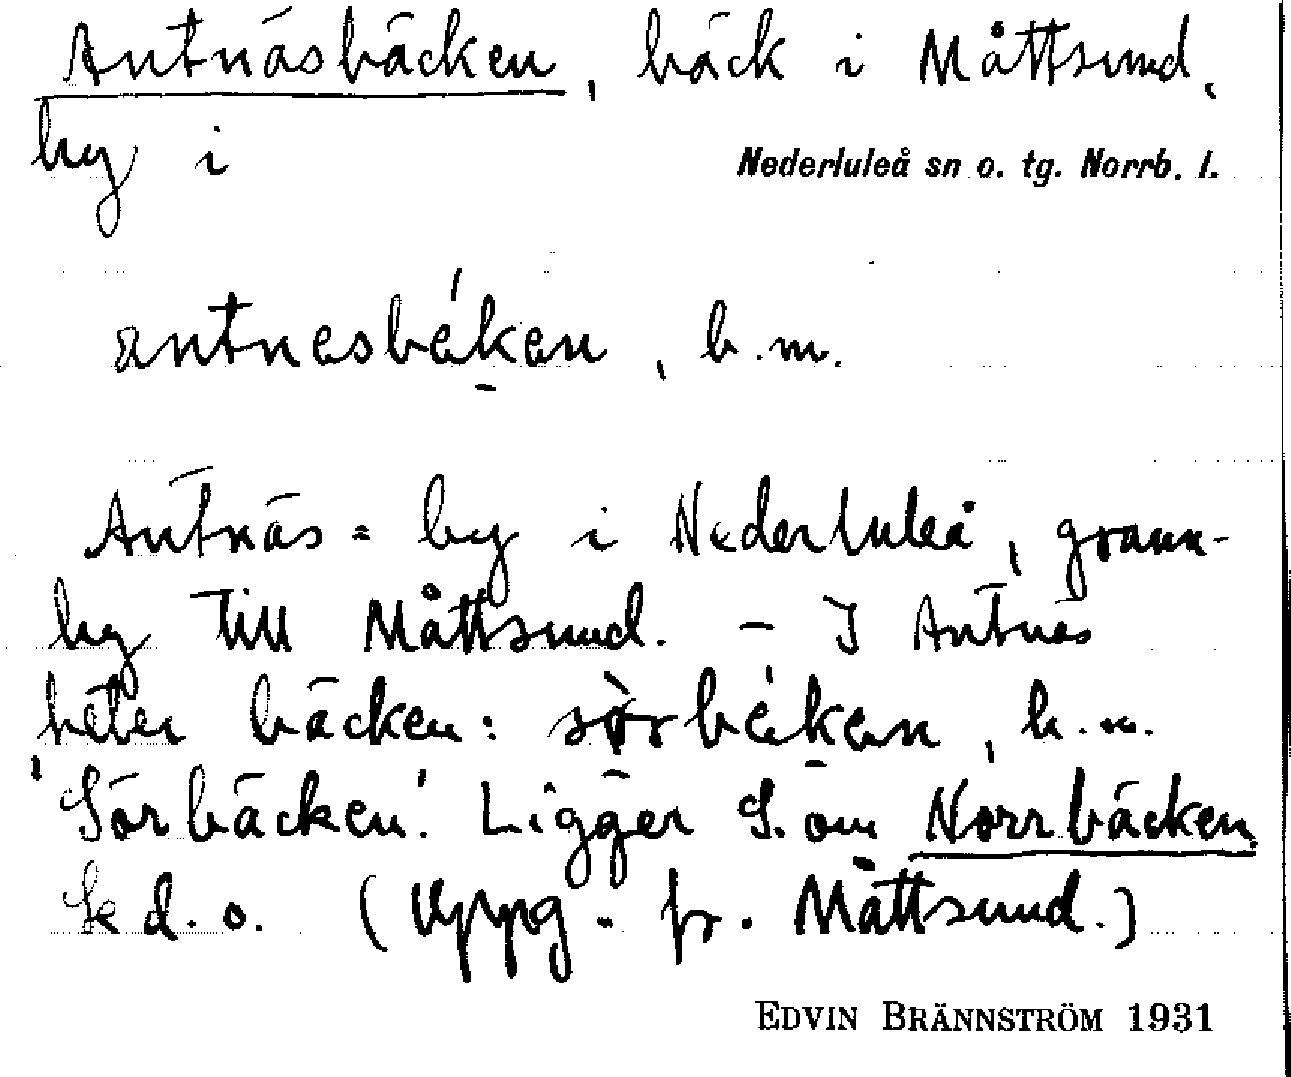 Antnäsbäcken, bäck i Måttsund,
by i Nederluleå sn o. tg. Norrb. l.
antnesbéken, b.m.
Antnäs = by i Nederluleå, grann-
by till Måttsund. – I Antnäs
heter bäcken: sòrbéken, b.m.
'Sörbäcken'. Ligger S. om Norrbäcken.
Se d. o. (Uppg. fr. Måttsund.)
EDVIN BRÄNNSTRÖM 1931